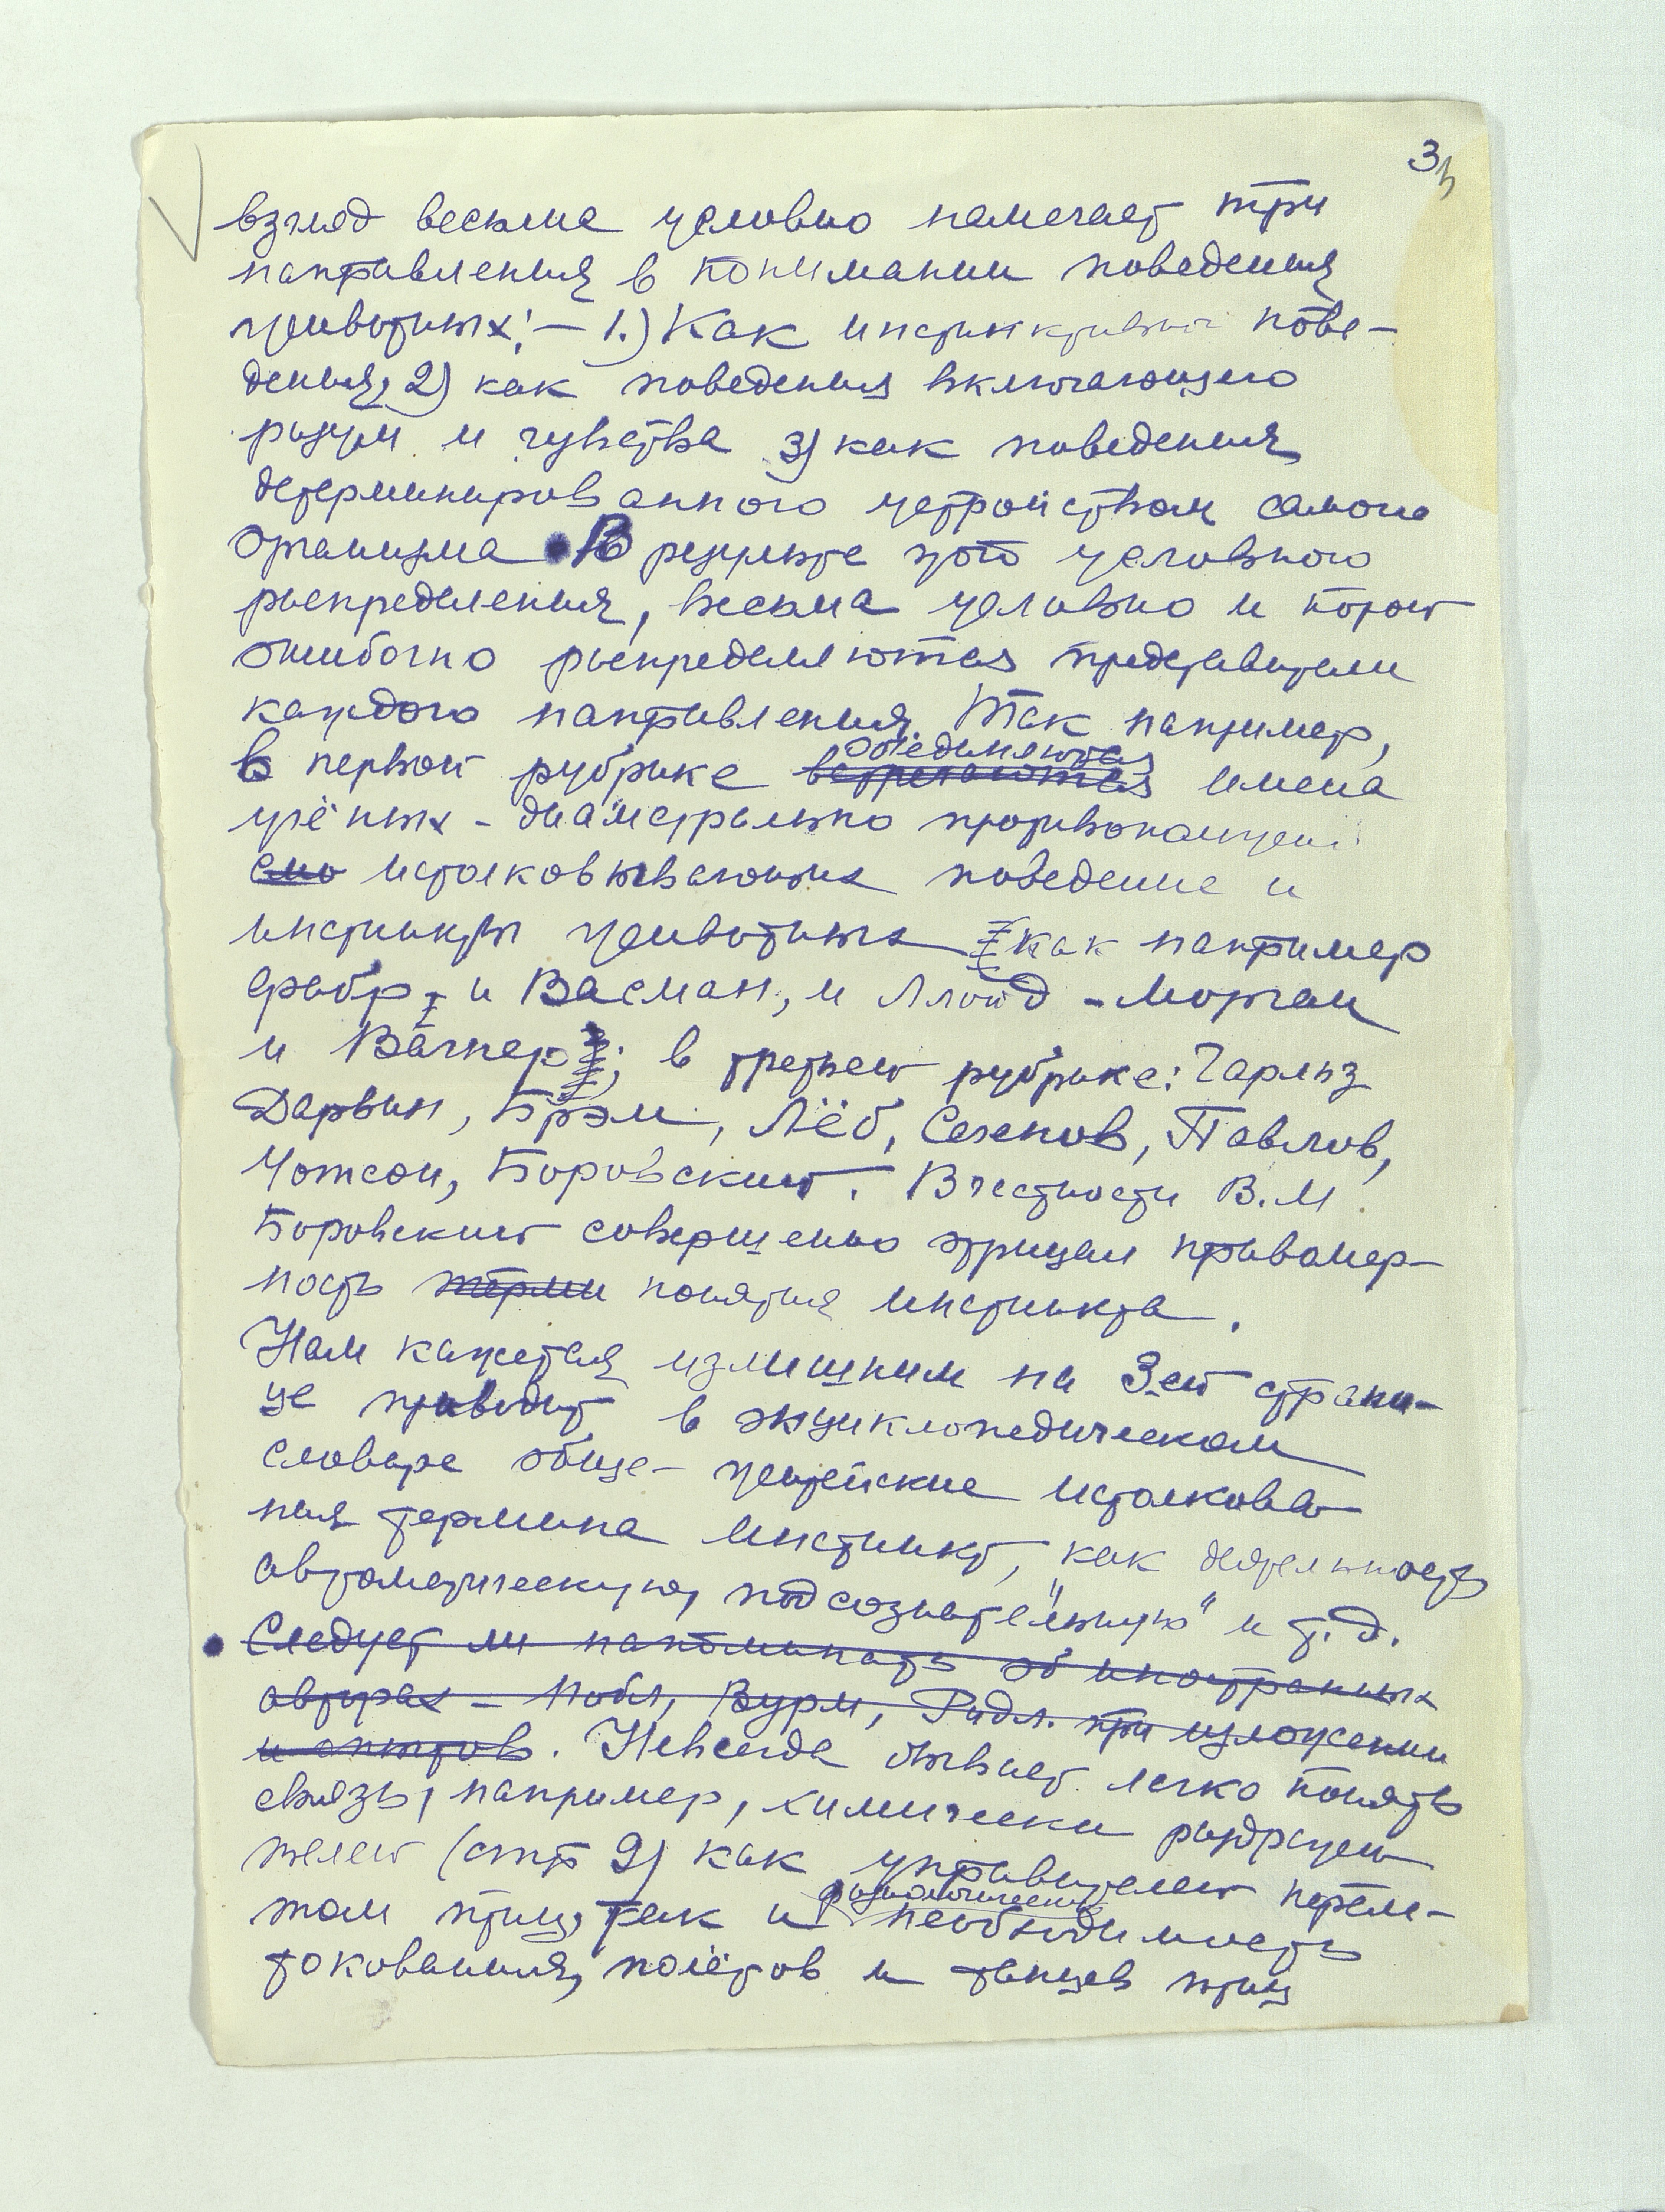 3
взгляд весьма условно намечает три
направления в понимании поведения
животных: — 1.) Как инстинктивного пове-
дения, 2) как поведения включающего
разум и чувства 3) как поведения
детерминированного устройством самого
организма В результате этого условного
распределения, весьма условно и порой
ошибочно распределяются представители
каждого направления. Так например,
объединяются
в первой рубрике встречаются имена
учёных - диаметрально противоположно
истолковывающих поведение и
инстинкты животных как например
Фабр, и Васман, и Ллойд - Морган
и Вагнер; в третьей рубрике: Чарльз
Дарвин, Брэм, Лёб, Сеченов, Павлов,
Уотсон, Боровский. В частности В.М.
Боровский совершенно отрицал правомер-
ность терми понятия инстинкта.
Нам кажется излишним на 3-ей страни-
це приводить в энциклопедическом
словаре обще-житейские истолкова-
ния термина инстинкт, как деятельность
автоматическую, подсознательную" и т.д.
Следует ли напоминать об иностранных
авторах - Нобл, Вурм, Ридл. при изложении
. Не всегда бывает легко понять
связь, например, химически раздражи-
телей (стр 9) как управителей перели-
физиологическую
том птиц, так и необходимость
токования, полётов и танцев птиц